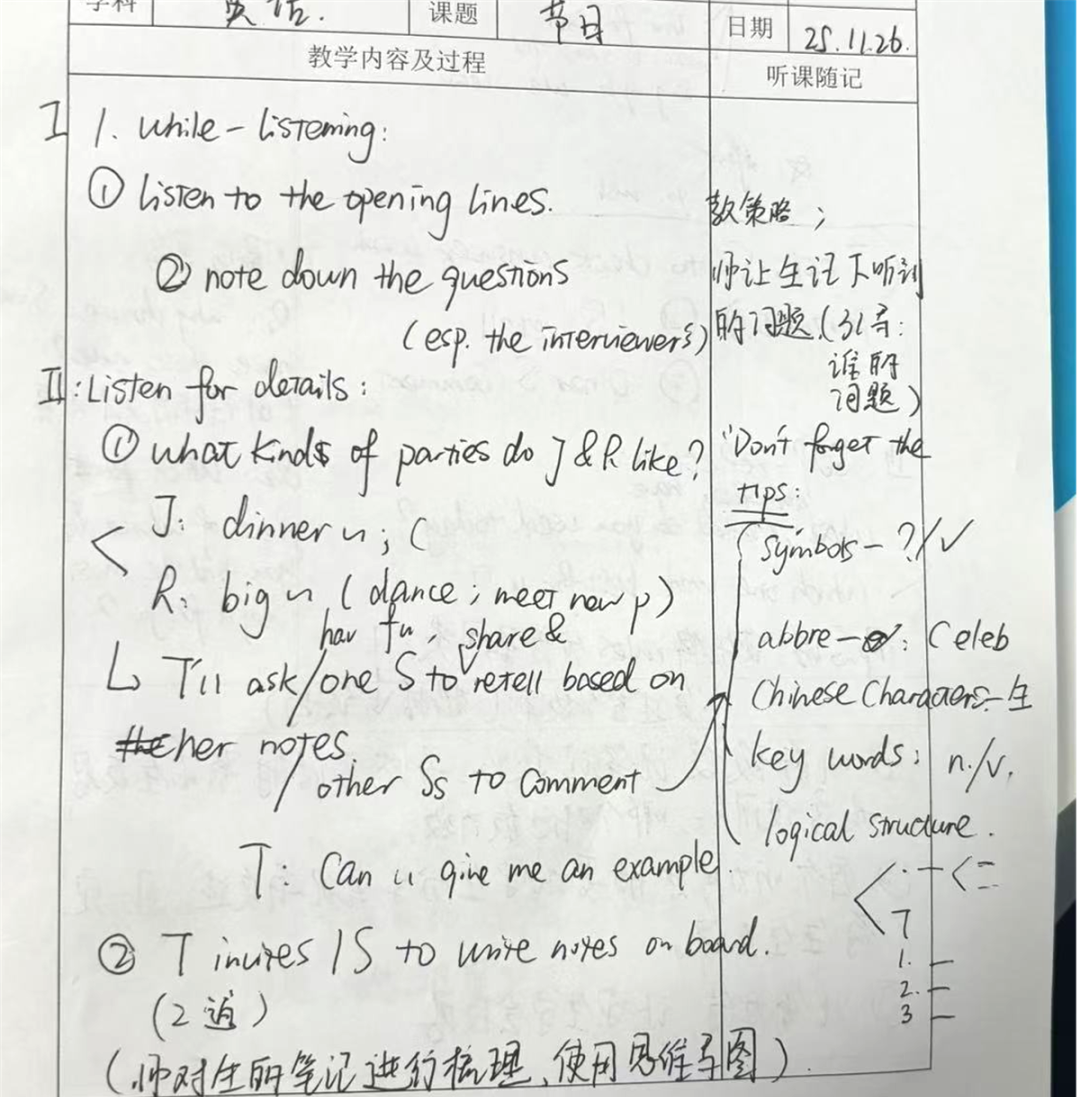 学科 英语. 课题 节日 日期 25.11.26.
教学内容及过程
听课随记
I 1. While-listening:
① listen to the opening lines.
② note down the questions
(esp. the interviewer's)
II: Listen for details:
① what kinds of parties do J & R like?
J: dinner u; (
R: big u (dance; meet new p)
hav fu, share &
↳ T: ll ask/one S to retell based on
her notes.
/other Ss to comment
T: Can u give me an example.
② T invites 1S to write notes on board.
(2遍)
(师对生的笔记进行梳理、使用思维导图)
教策略;
师让生记下听到
的问题.(引导:
谁的
问题)
"Don't forget the
tips:
symbols - ?/✓
abbre-: Celeb
Chinese Characters-生
key words: n./v.
logical structure.
T
1. —
2. —
3 —